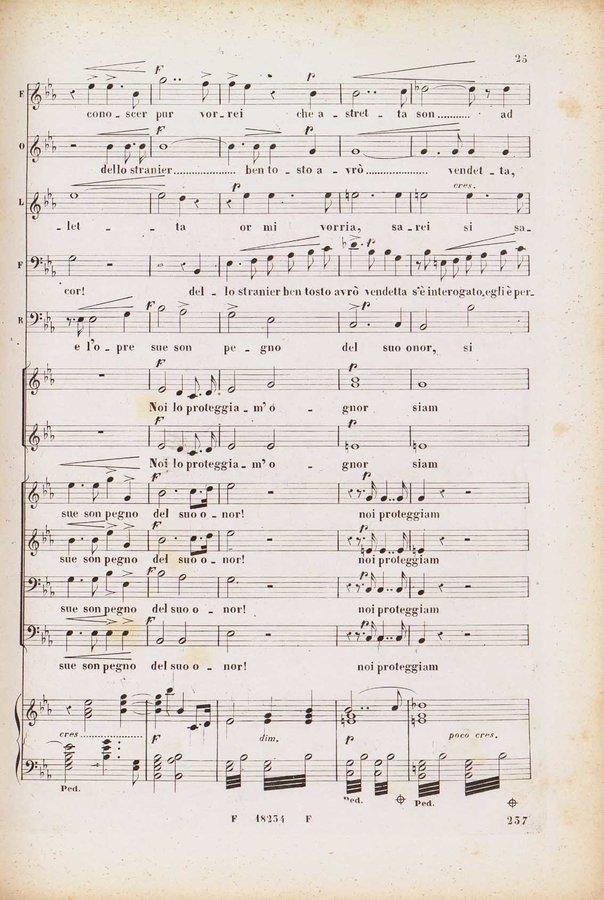 25
F
E
cono_scer pur vor_rei che a stret_ta son......... ad
O
F
dello stranier............... ben to_sto a_vrò............... vendet_ta,
L
cres.
_let_ta or mi vorria, sa_rei si sa_
F
cor! del_lo stranier ben tosto avrò vendetta s'è interogato, egli è per_
R
F
e l'o_pre sue son pe_gno del suo onor, si
F p
Noi lo proteggia_m' o_gnor siam
F p
Noi lo proteggia_m' o_gnor siam
F p
sue son pegno del suo o_nor! noi proteggiam
F p
sue son pegno del suo o_nor! noi proteggiam
F p
sue son pegno del suo o_nor! noi proteggiam
F p
sue son pegno del suo o_nor! noi proteggiam
cres............... F dim. p poco cres.
Ped. Ped. Ped.
F 18254 F 257